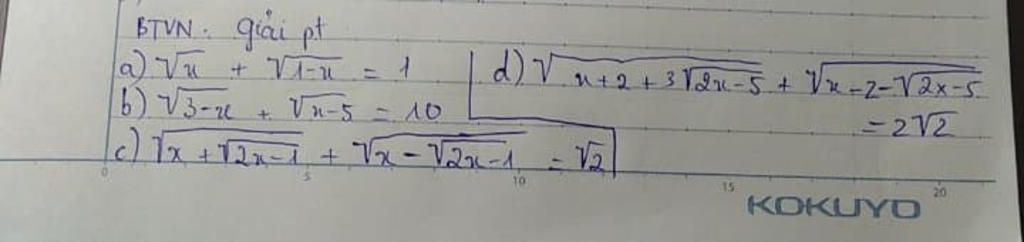 BTVN. Giải pt
a) √x + √1-x = 1
b) √3-x + √x-5 = 10
c) √x + √2x-1 + √x - √2x-1 = √2
d) √x+2+3√2x-5 + √x-2-√2x-5
= 2√2
0 5 10 15 20
KOKUYO